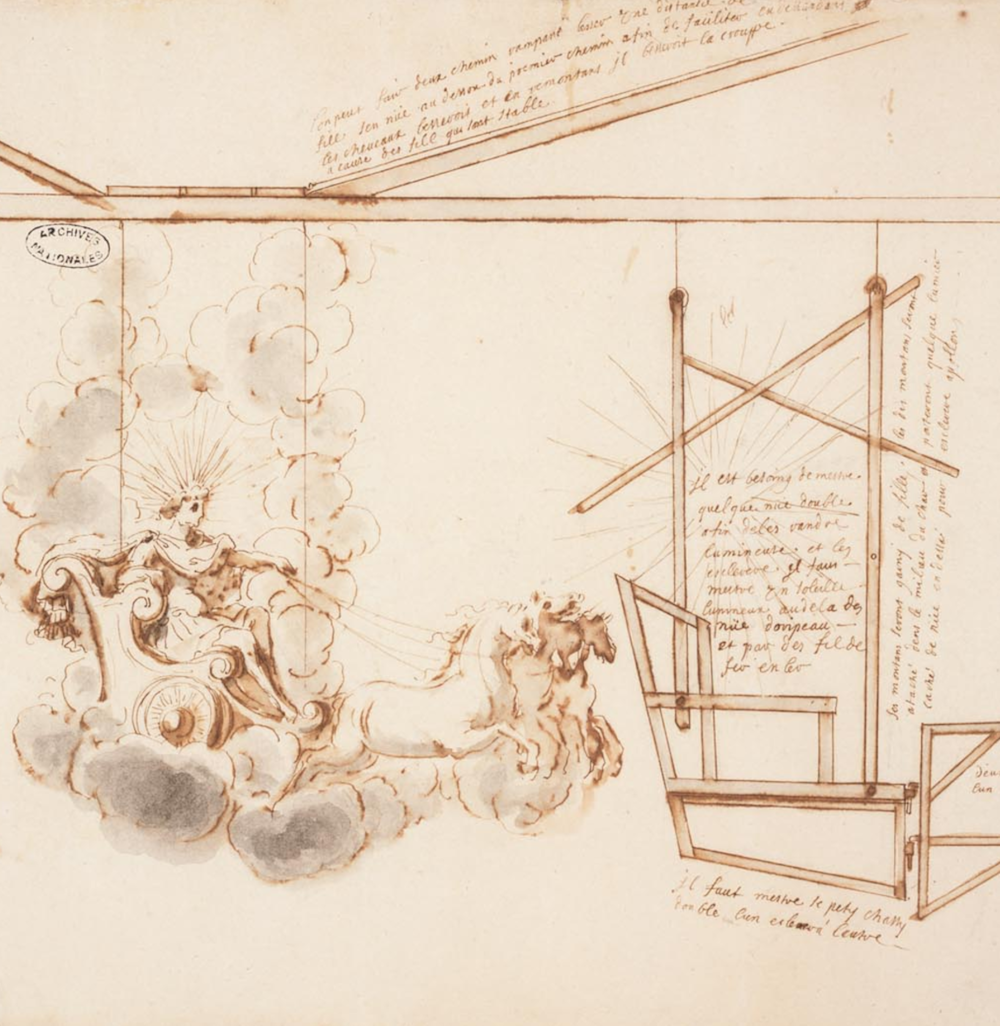 l'on peut fair deux chemin rampant lesser une distance de
fille son nüe au desson du premier chemin afin de faciliter en decendans
les cheveaux lesserois et en remontans il lesseroit la crouppe
a cause des fill qui sont stable
ARCHIVES
NATIONALES
il est besoing de mestre
quelque nüe double
afin de les randre
lumineuse et les
esclerere il faus
mestre un soleille
lumineux au dela des
nüe doripeau
et par des fil de
fer en ler
les montans seront garny de fille les dis montans seront
atache dans le milieu du char et pateront quelque lumier
cache de nüe en dessu pour esclerere apollon
il faut mestre le pety chassy
double l'un eslewa l'autre
deux
l'un